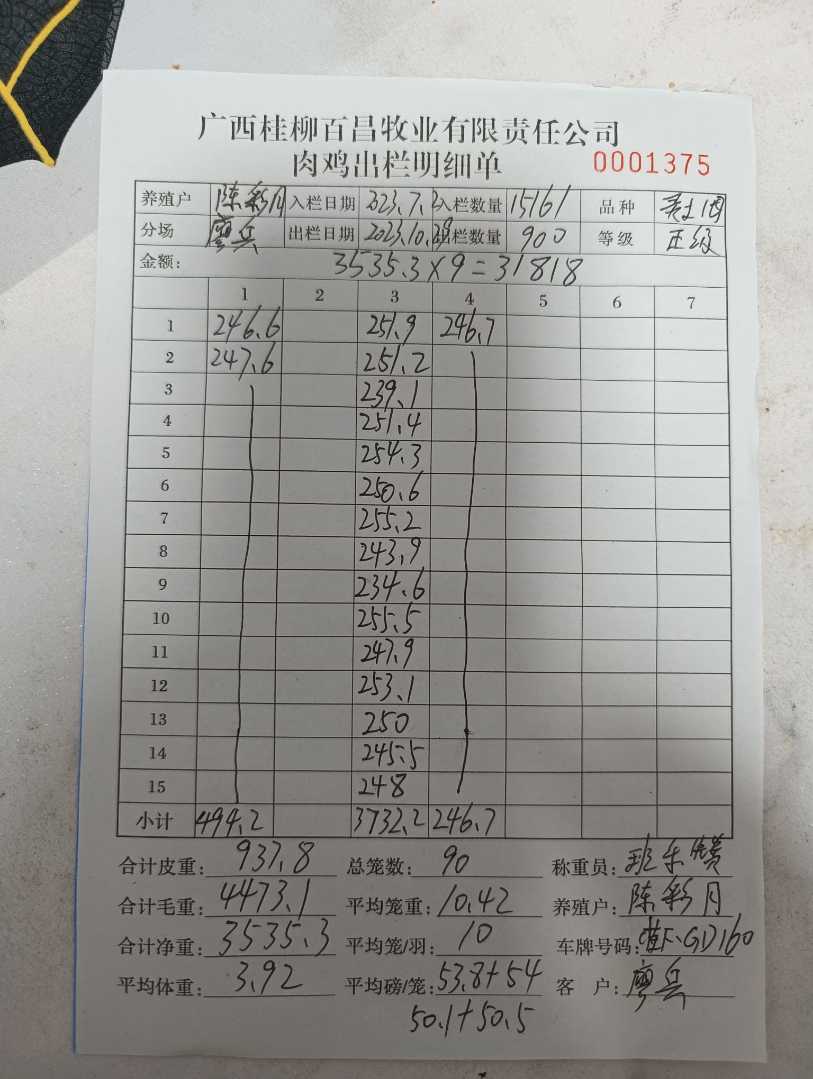 广西桂柳百昌牧业有限责任公司
肉鸡出栏明细单 0001375
养殖户 陈彩月 入栏日期 2023.7. 入栏数量 15161 品种
分场 廖兵 出栏日期 2023.10. 出栏数量 900 等级 正级
金额: 3535.3×9=31818
1 2 3 4 5 6 7
1 246.6 251.9 246.7
2 247.6 251.2
3 239.1
4 251.4
5 254.3
6 250.6
7 255.2
8 243.9
9 234.6
10 255.5
11 247.9
12 253.1
13 250
14 245.5
15 248
小计 494.2 3732.2 246.7
合计皮重: 937.8 总笼数: 90 称重员: 班
合计毛重: 4473.1 平均笼重: 10.42 养殖户: 陈彩月
合计净重: 3535.3 平均笼/羽: 10 车牌号码: GD160
平均体重: 3.92 平均磅/笼: 53.8+54 客 户: 廖兵
50.1+50.5